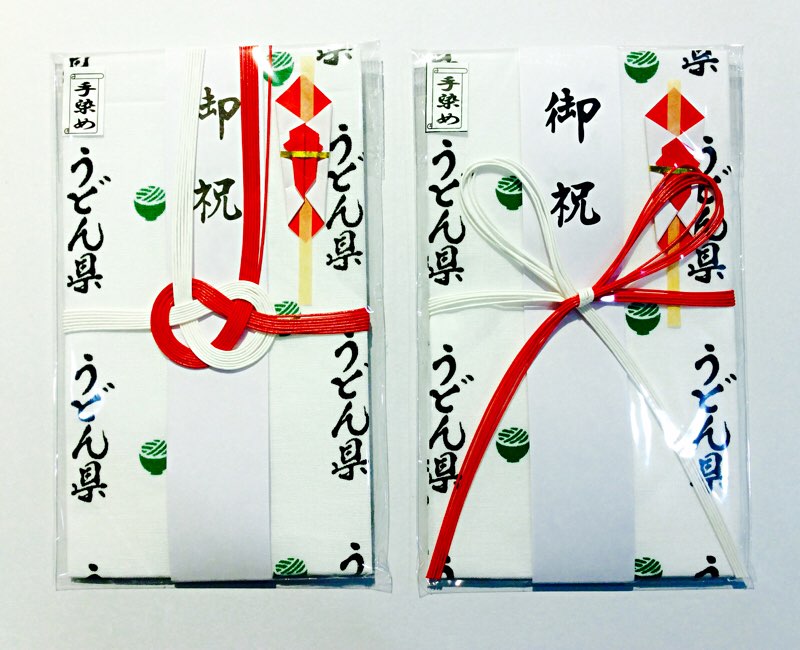 手染め
御祝
うどん県
うどん県
うどん県
うどん県
う
県
手染め
御祝
うどん県
うどん県
うどん県
うどん県
う
県